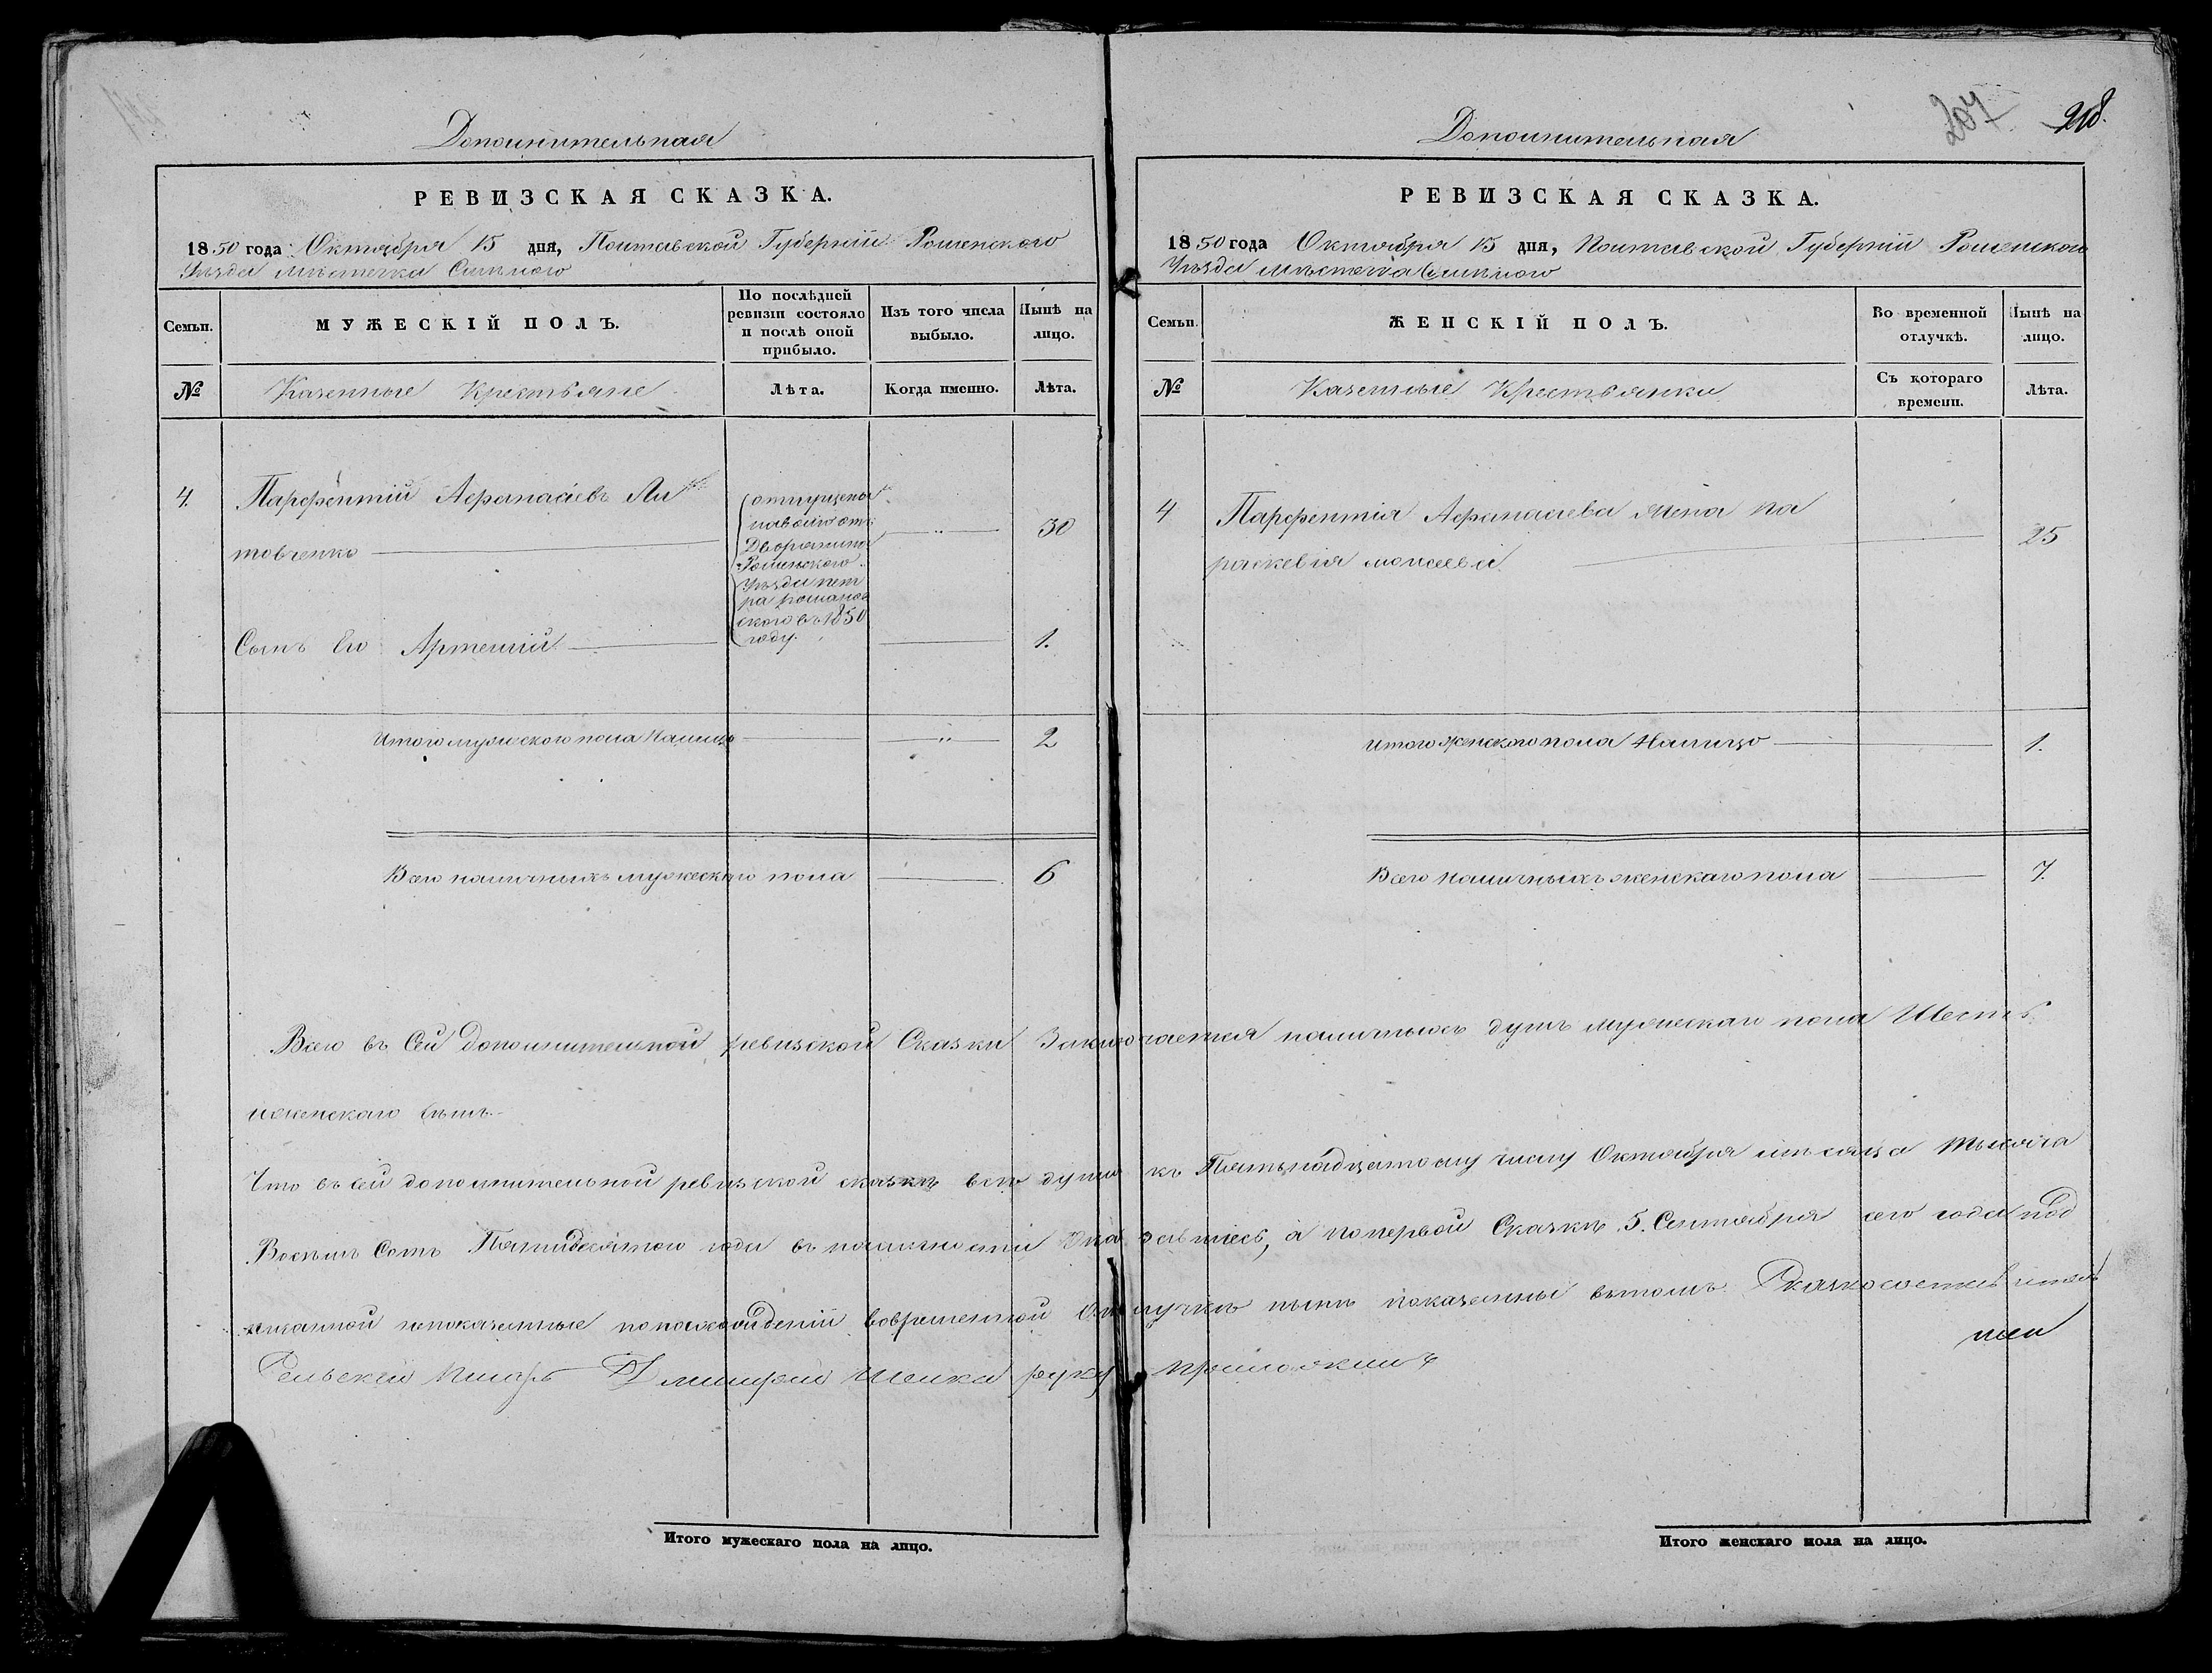 Дополнительная
РЕВИЗСКАЯ СКАЗКА.
1850 года Октября 15 дня, Полтавской Губерніи Роменского
Уезда местечка Смелого
Семьи.
МУЖЕСКІЙ ПОЛЪ.
По послѣдней ревизіи состояло и послѣ оной прибыло.
Изъ того числа выбыло.
Нынѣ на лицо.
№
Казенные Крестьяне
Лѣта.
Когда именно.
Лѣта.
4.
Парфентій Афанасіевъ Ли
товченко
отпущены
наволю отъ
Дворянина
Роменского
Уезда пет
ра романов
ского въ 1850
году.
30
Сынъ Его Артемій
1.
Итого мужеского пола Налицо
2
Всего наличныхъ мужескаго пола
6
207
208.
Дополнительная
РЕВИЗСКАЯ СКАЗКА.
1850 года Октября 15 дня, Полтавской Губерніи Роменского
Уезда местечка Смелого
Семьи.
ЖЕНСКІЙ ПОЛЪ.
Во временной отлучкѣ.
Нынѣ на лицо.
№
Казенные Крестьянки
Съ котораго времени.
Лѣта.
4
Парфентія Афанасіева жена па
раскевія моисеева
25
Итого женского пола Налицо
1.
Всего наличныхъ женскаго пола
7.
Всего въ Сей Дополнительной ревизской Сказки Заключается наличныхъ душъ мужескаго пола Шесть
иженскаго семъ
Что въ сей дополнительной ревизской сказке всего душъ къ Пятьнадцатому числу Октября месяца Тысяча
Восемъ Сотъ Пятидесятого года въ наличности оказавшиесь, а попервой Сказке 5. Сентября сего года под
писанной непоказанные понахождении вовременной Отлучке ныне показанны вътомъ Сказкосоставитель
Сельскій Писарь Дмитрій Шейка руку приложилъ
Итого мужескаго пола на лицо.
Итого женскаго пола на лицо.